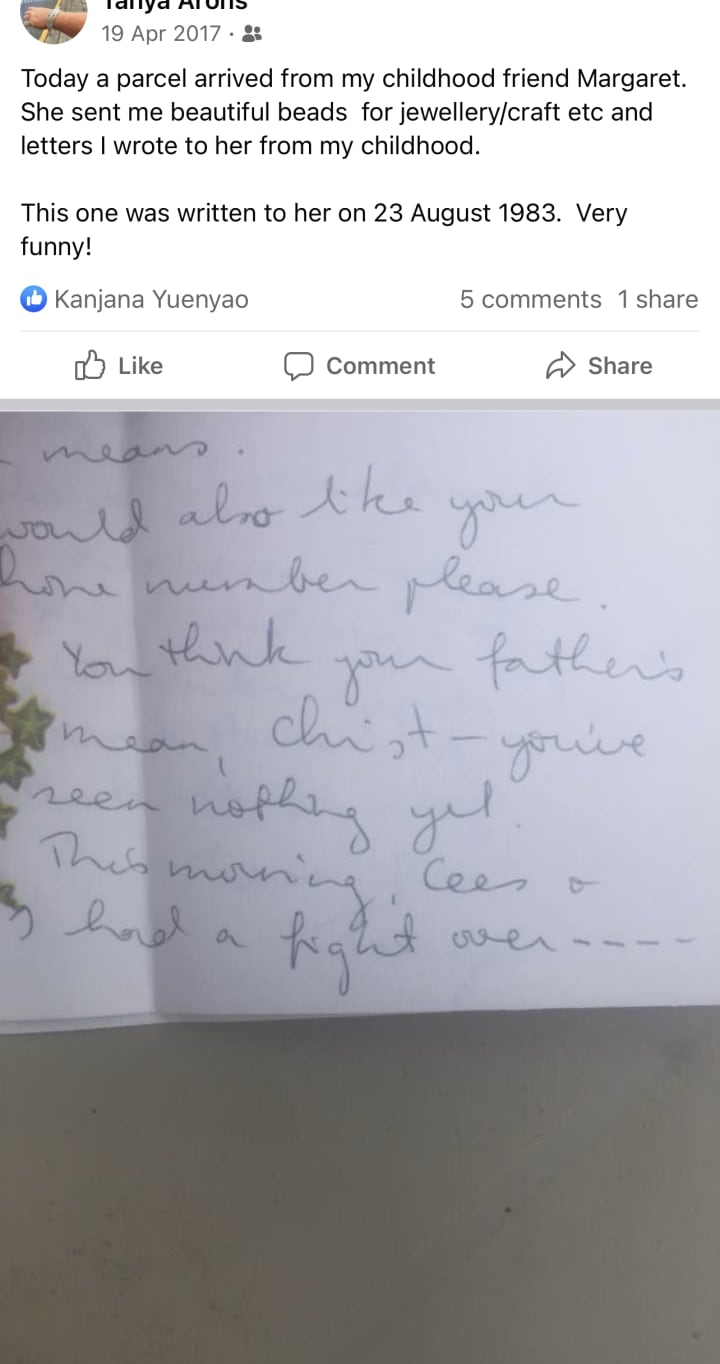 Tanya Arons
19 Apr 2017 ·
Today a parcel arrived from my childhood friend Margaret.
She sent me beautiful beads  for jewellery/craft etc and
letters I wrote to her from my childhood.
This one was written to her on 23 August 1983.  Very
funny!
Kanjana Yuenyao
5 comments 1 share
Like Comment Share
- means.
would also like your
phone number please.
You think your father's
mean, christ – you've
seen nothing yet.
This morning, Cees &
I had a fight over - - - -